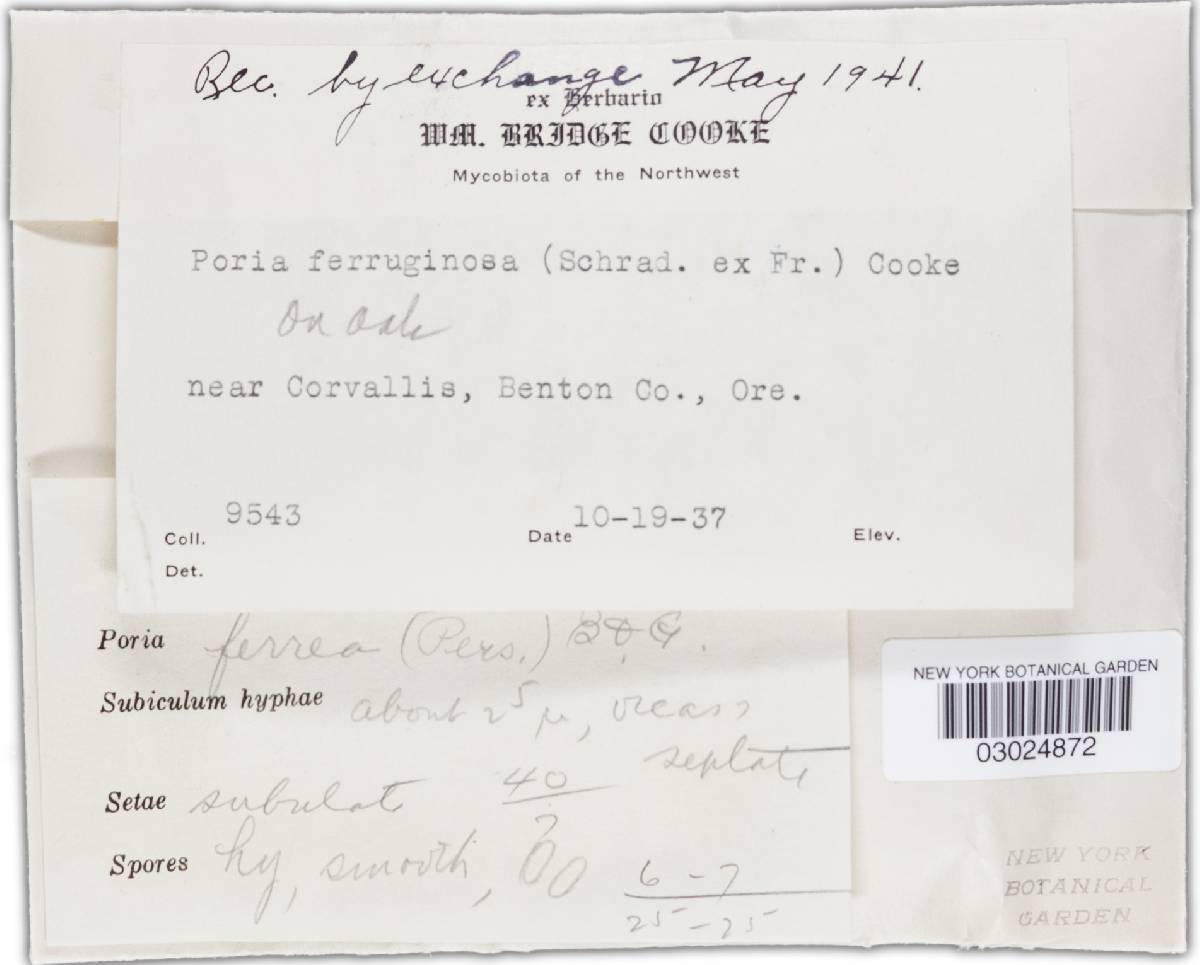 Rec. by exchange May 1941.
ex Herbario
WM. BRIDGE COOKE
Mycobiota of the Northwest
Poria ferruginosa (Schrad. ex Fr.) Cooke
on oak
near Corvallis, Benton Co., Ore.
9543
10-19-37
Coll. Date Elev.
Det.
Poria ferrea (Pers.) B & G.
Subiculum hyphae about 25 µ,
septate
Setae subulate 40
Spores hy, smooth, 6-7
25-25
NEW YORK BOTANICAL GARDEN
03024872
NEW YORK
BOTANICAL
GARDEN